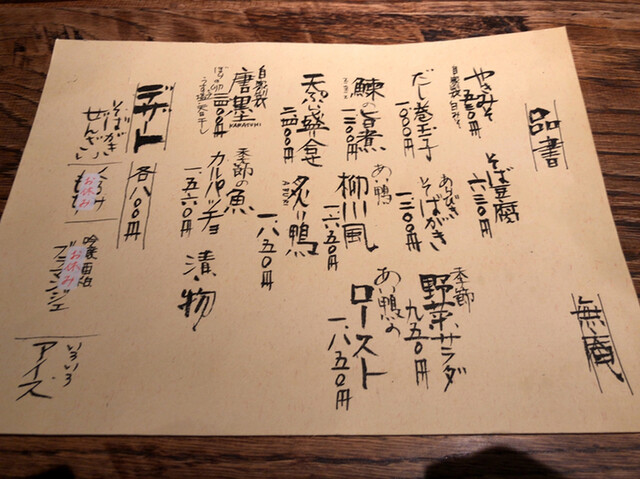 品書
無庵
やきみそ
五五〇円
自家製 白みそ
そば豆腐
六三〇円
季節
野菜サラダ
九五〇円
だし巻玉子
一、〇〇〇円
あらびき
そばがき
一、二〇〇円
あい鴨の
ロースト
一、八五〇円
鰊の旨煮
一、二〇〇円
あい鴨
柳川風
一、六五〇円
天ぷら盛り合せ
二、四〇〇円
炙り鴨
ABURI
一、八五〇円
自家製
唐墨
KARASUMI
二、四〇〇円
ぼらの卵
うす塩天日干し
季節の魚
カルパッチョ
一、五六〇円
漬物
デザート
各八〇〇円
そばがき
ぜんざい
くるみ
もち
お休み
吟醸酒粕
ブラマンジェ
お休み
いろいろ
アイス